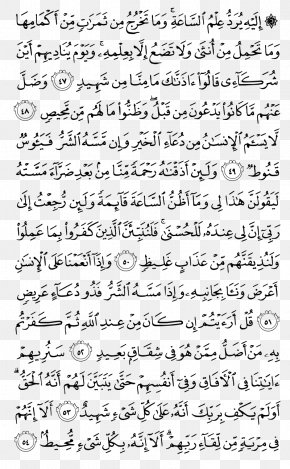 ۞ إِلَيْهِ يُرَدُّ عِلْمُ السَّاعَةِ ۚ وَمَا تَخْرُجُ مِن ثَمَرَاتٍ مِّنْ أَكْمَامِهَا
وَمَا تَحْمِلُ مِنْ أُنثَىٰ وَلَا تَضَعُ إِلَّا بِعِلْمِهِ ۚ وَيَوْمَ يُنَادِيهِمْ أَيْنَ
شُرَكَاءِي قَالُوا ءَاذَنَّاكَ مَا مِنَّا مِن شَهِيدٍ ٤٧ وَضَلَّ
عَنْهُم مَّا كَانُوا يَدْعُونَ مِن قَبْلُ ۖ وَظَنُّوا مَا لَهُم مِّن مَّحِيصٍ ٤٨
لَّا يَسْـَٔمُ الْإِنسَانُ مِن دُعَاءِ الْخَيْرِ وَإِن مَّسَّهُ الشَّرُّ فَيَـُٔوسٌ
قَنُوطٌ ٤٩ وَلَئِنْ أَذَقْنَاهُ رَحْمَةً مِّنَّا مِن بَعْدِ ضَرَّاءَ مَسَّتْهُ
لَيَقُولَنَّ هَٰذَا لِي وَمَا أَظُنُّ السَّاعَةَ قَائِمَةً وَلَئِن رُّجِعْتُ إِلَىٰ
رَبِّي إِنَّ لِي عِندَهُ لَلْحُسْنَىٰ ۚ فَلَنُنَبِّئَنَّ الَّذِينَ كَفَرُوا بِمَا عَمِلُوا
وَلَنُذِيقَنَّهُم مِّنْ عَذَابٍ غَلِيظٍ ٥٠ وَإِذَا أَنْعَمْنَا عَلَى الْإِنسَانِ
أَعْرَضَ وَنَـَٔا بِجَانِبِهِ وَإِذَا مَسَّهُ الشَّرُّ فَذُو دُعَاءٍ عَرِيضٍ
٥١ قُلْ أَرَءَيْتُمْ إِن كَانَ مِنْ عِندِ اللَّهِ ثُمَّ كَفَرْتُم
بِهِ مَنْ أَضَلُّ مِمَّنْ هُوَ فِي شِقَاقٍ بَعِيدٍ ٥٢ سَنُرِيهِمْ
ءَايَاتِنَا فِي الْآفَاقِ وَفِي أَنفُسِهِمْ حَتَّىٰ يَتَبَيَّنَ لَهُمْ أَنَّهُ الْحَقُّ ۗ
أَوَلَمْ يَكْفِ بِرَبِّكَ أَنَّهُ عَلَىٰ كُلِّ شَيْءٍ شَهِيدٌ ٥٣ أَلَا إِنَّهُمْ
فِي مِرْيَةٍ مِّن لِّقَاءِ رَبِّهِمْ ۗ أَلَا إِنَّهُ بِكُلِّ شَيْءٍ مُّحِيطٌ ٥٤